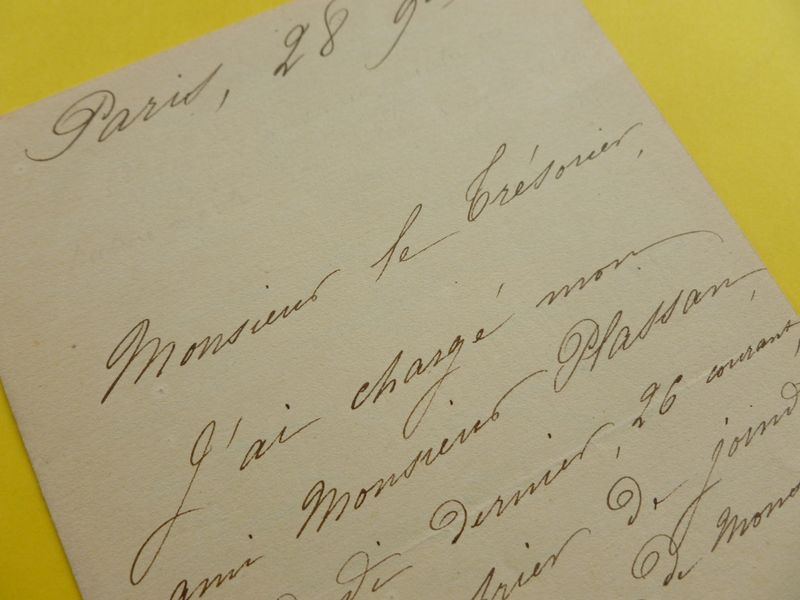 Paris, 28 9
Monsieur le Trésorier,
J'ai chargé mon
ami Monsieur Plassan,
di dernier, 26 courant,
de joind
de Mons